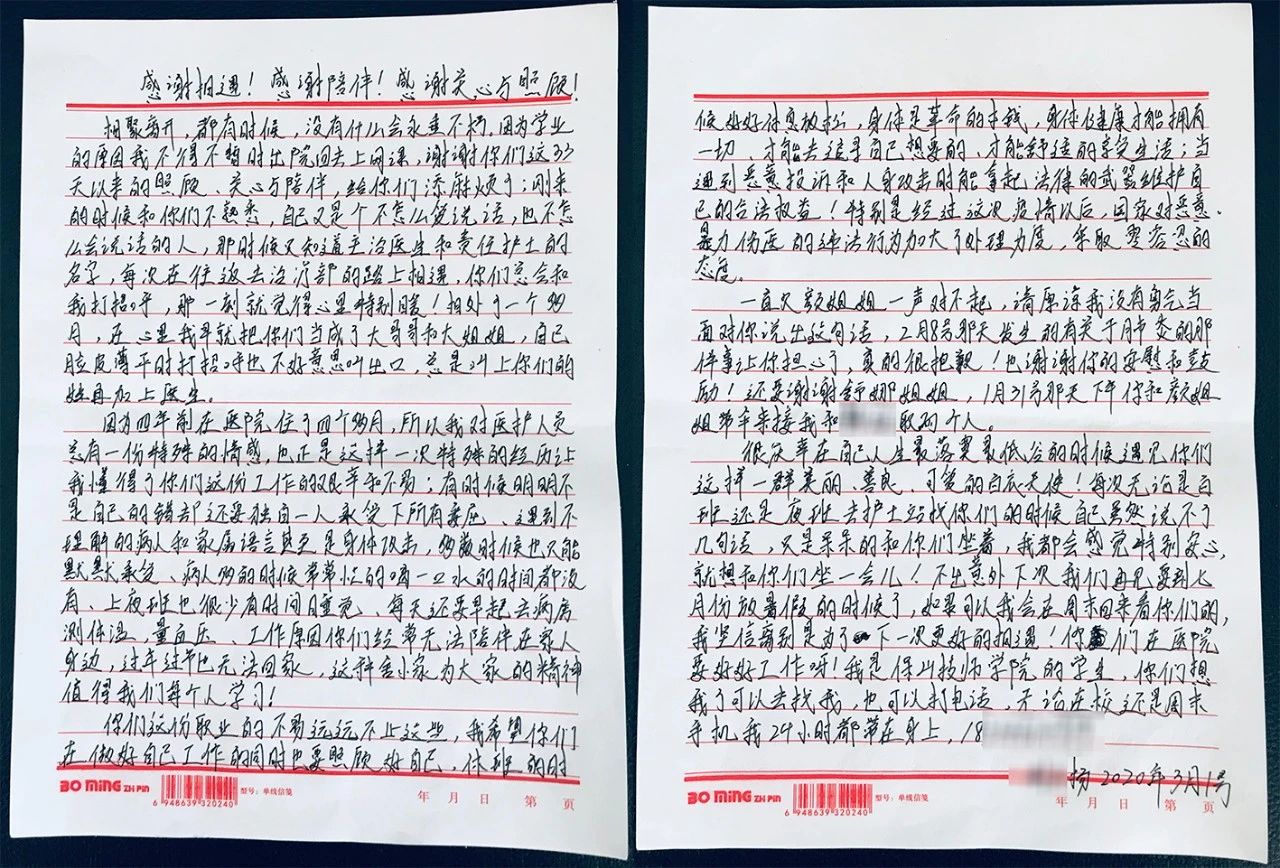 感谢相遇！感谢陪伴！感谢关心与照顾！
相聚离开，都有时候，没有什么会永垂不朽，因为学业
的原因我不得不暂时出院回去上网课，谢谢你们这33
天以来的照顾、关心与陪伴，给你们添麻烦了；刚来
的时候和你们不熟悉，自己又是个不怎么爱说话，也不怎
么会说话的人，那时候只知道主治医生和责任护士的
名字，每次在往返去治疗部的路上相遇，你们总会和
我打招呼，那一刻就觉得心里特别暖！相处了一个多
月，在心里我早就把你们当成了大哥哥和大姐姐，自己
脸皮薄平时打招呼也不好意思叫出口，总是叫上你们的
姓再加上医生。
因为四年前在医院住了四个多月，所以我对医护人员
总有一份特殊的情感，也正是这样一次特殊的经历让
我懂得了你们这份工作的艰辛和不易；有时候明明不
是自己的错却还要独自一人承受下所有委屈、遇到不
理解的病人和家属语言甚至是身体攻击，多数时候也只能
默默承受、病人多的时候常常忙的喝一口水的时间都没
有、上夜班也很少有时间睡觉、每天还要早起去病房
测体温，量血压、工作原因你们经常无法陪伴在家人
身边，过年过节也无法回家，这种舍小家为大家的精神
值得我们每个人学习！
你们这份职业的不易远远不止这些，我希望你们
在做好自己工作的同时也要照顾好自己，休班的时
BO MING ZHI PIN
6 948639 320240
型号：单线信笺
年 月 日 第 页
候好好休息放松，身体是革命的本钱，身体健康才能拥有
一切、才能去追寻自己想要的、才能舒适的享受生活；当
遇到恶意投诉和人身攻击时能拿起法律的武器维护自
己的合法权益！特别是经过这次疫情以后，国家对恶意、
暴力伤医的违法行为加大了处理力度，采取零容忍的
态度。
一直欠颜姐姐一声对不起，请原谅我没有勇气当
面对你说出这句话，2月8号那天发生的有关于月市委的那
件事让你担心了，真的很抱歉！也谢谢你的安慰和鼓
励！还要谢谢舒娜姐姐，1月31号那天下午你和颜姐
姐带伞来接我和 取两个人。
很庆幸在自己人生最落寞最低谷的时候遇见你们
这样一群美丽、善良、可爱的白衣天使！每次无论是白
班还是夜班去护士站找你们的时候自己虽然说不了
几句话，只是呆呆的和你们坐着，我都会感觉特别安心，
就想和你们坐一会儿！不出意外下次我们再见要到七
月份放暑假的时候了，如果可以我会在周末回来看你们的，
我坚信离别是为了下一次更好的相遇！你们在医院
要好好工作呀！我是保山技师学院的学生，你们想
我了可以去找我，也可以打电话，无论在校还是周末
手机我24小时都带在身上，18
扬 2020年3月1号
BO MING ZHI PIN
6 948639 320240
型号：单线信笺
年 月 日 第 页